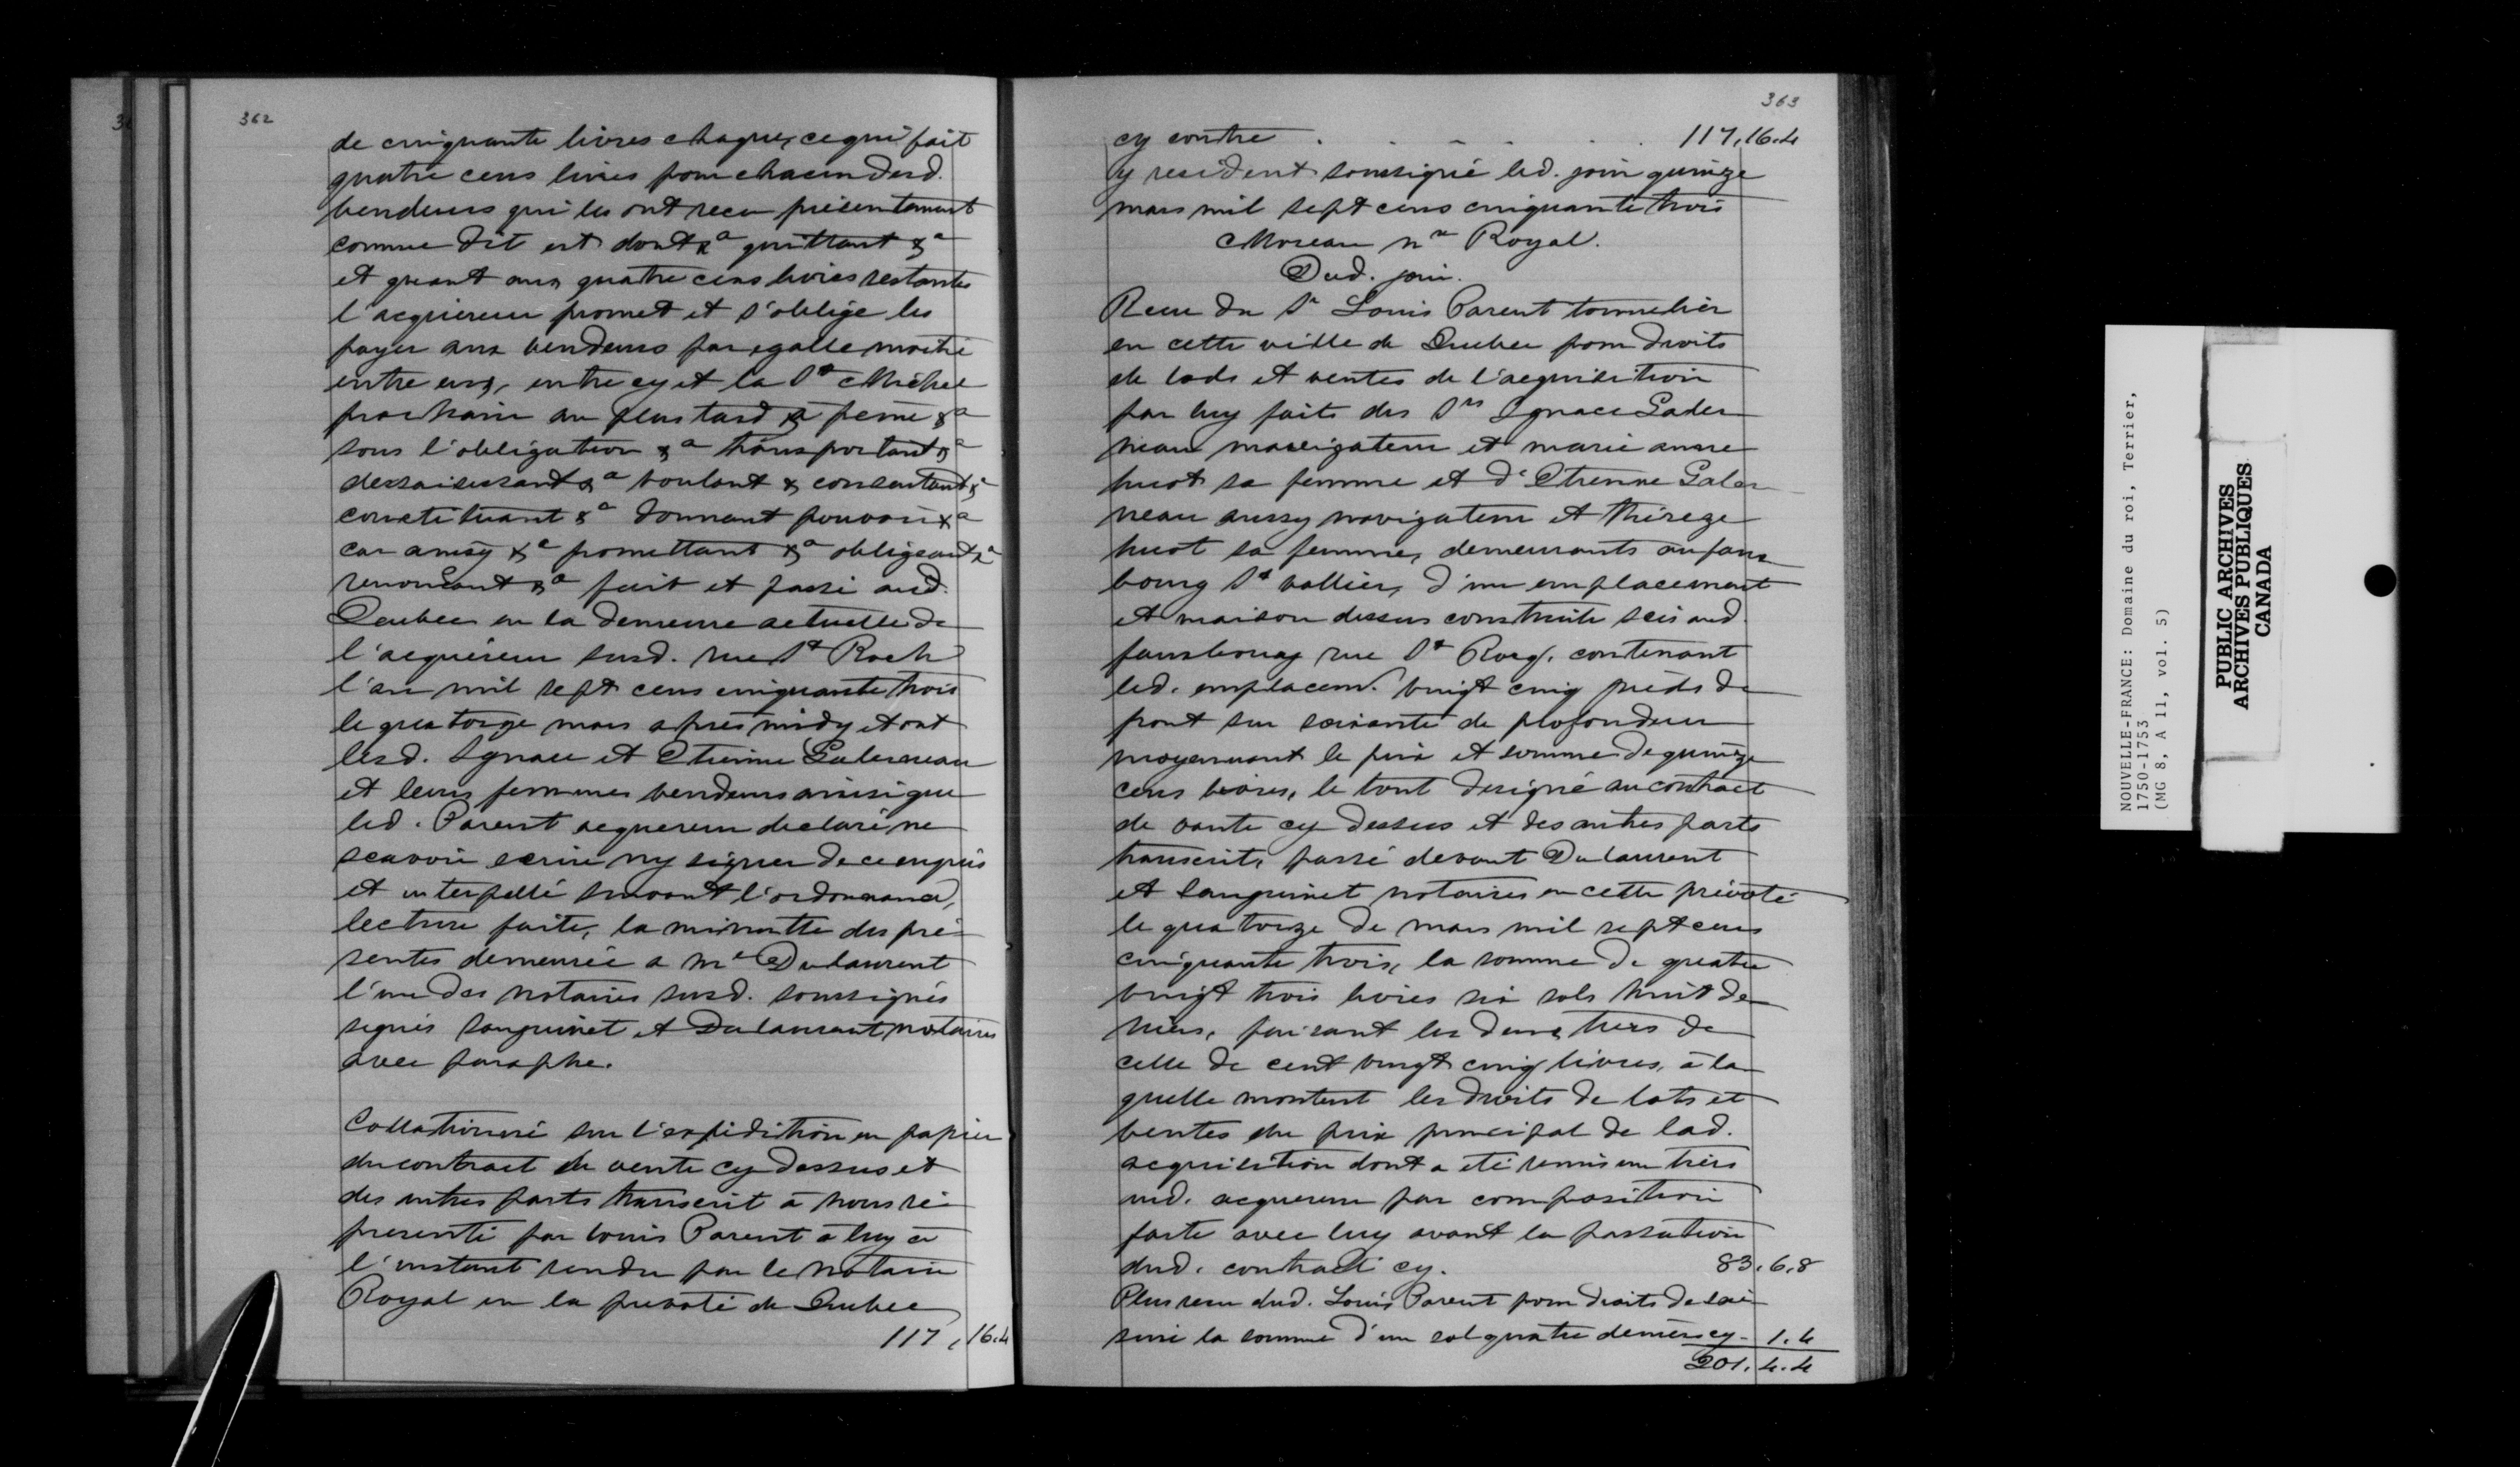 362
de cinquante livres chaque, ce qui fait
quatre cens livres pour chacun desd.
vendeurs qui les ont recu présentement
comme dit est dont &a quittant &a
et quant aux quatre cens livres restantes
l'acquereur promet et s'oblige les
payer aux vendeurs par egalle moitié
entre eux, entre cy et la St Michel
prochain au plus tard &a peine &a
sous l'obligation &a transportant &a
dessaisissant &a voulant & consentant &a
constituant &a donnant pouvoir &a
car ainsy &a promettant &a obligeant &a
renonçant &a fait et passé aud.
Quebec en la demeure actuelle de
l'acquéreur susd. rue St Roch
l'an mil sept cens cinquante trois
le quatorze mars après midy et ont
lesd. Ignace et Etienne Galerneau
et leurs femmes vendeurs ainsi que
led. Parent acquereur declaré ne
scavoir ecrire ny signer de ce enquis
et interpellé suivant l'ordonnance,
lecture faite, la minutte des pré-
sentes demeurée a Me Dulaurent
l'un des notaires susd. soussignés
signés Sanguinet et Dulaurent, notaires
avec paraphe.
Collationné sur l'expédition en papier
du contract de vente cy dessus et
des autres parts transcrit à nous re-
presenté par Louis Parent à luy à
l'instant rendu par le notaire
Royal en la prevoté de Quebec
117, 16.4
363
cy contre . . . . 117.16.4
y resident soussigné led. jour quinze
mars mil sept cens cinquante trois
Moreau nre Royal.
Dud. jour.
Recu du Sr Louis Parent tonnelier
en cette ville de Quebec pour droits
de lods et ventes de l'acquisition
par luy faite des Srs Ignace Galer-
neau navigateur et marie anne
huot sa femme et d'Etienne Galer-
neau aussy navigateur et thérèze
huot sa femme, demeurants au faux
bourg St vallier, d'un emplacement
et maison dessus construite scis aud.
fauxbourg rue St Roq, contenant
led. emplacemt. vingt cinq pieds de
front sur soixante de profondeur
moyennant le prix et somme de quinze
cens livres, le tout designé au contract
de vente cy dessus et des autres parts
transcrit, passé devant Dulaurent
et Sanguinet notaires en cette prévoté
le quatorze de mars mil sept cens
cinquante trois, la somme de quatre
vingt trois livres six sols huit de-
niers, faisant les deux tiers de
celle de cent vingt cinq livres, à la-
quelle montent les droits de lots et
ventes du prix principal de lad.
acquisition dont a eté remis un tiers
aud. acquereur par composition
faite avec luy avant la passation
dud. contract cy. 83.6.8
Plus recu dud. Louis Parent pour droits de sai-
sine la somme d'un sol quatre deniers cy - 1.4
201.4.4
NOUVELLE-FRANCE: Domaine du roi, Terrier,
1750-1753
(MG 8, A 11, vol. 5)
PUBLIC ARCHIVES
ARCHIVES PUBLIQUES
CANADA